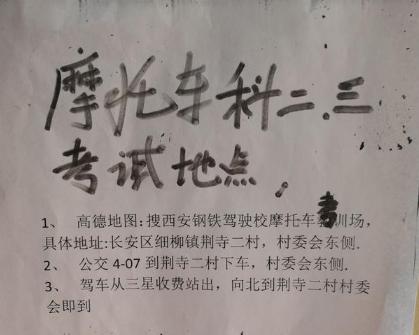 摩托车科二.三
考试地点,
1、 高德地图:搜西安钢铁驾驶校摩托车训场,
具体地址:长安区细柳镇荆寺二村，村委会东侧.
2、 公交 4-07 到荆寺二村下车，村委会东侧.
3、 驾车从三星收费站出，向北到荆寺二村村委
会即到